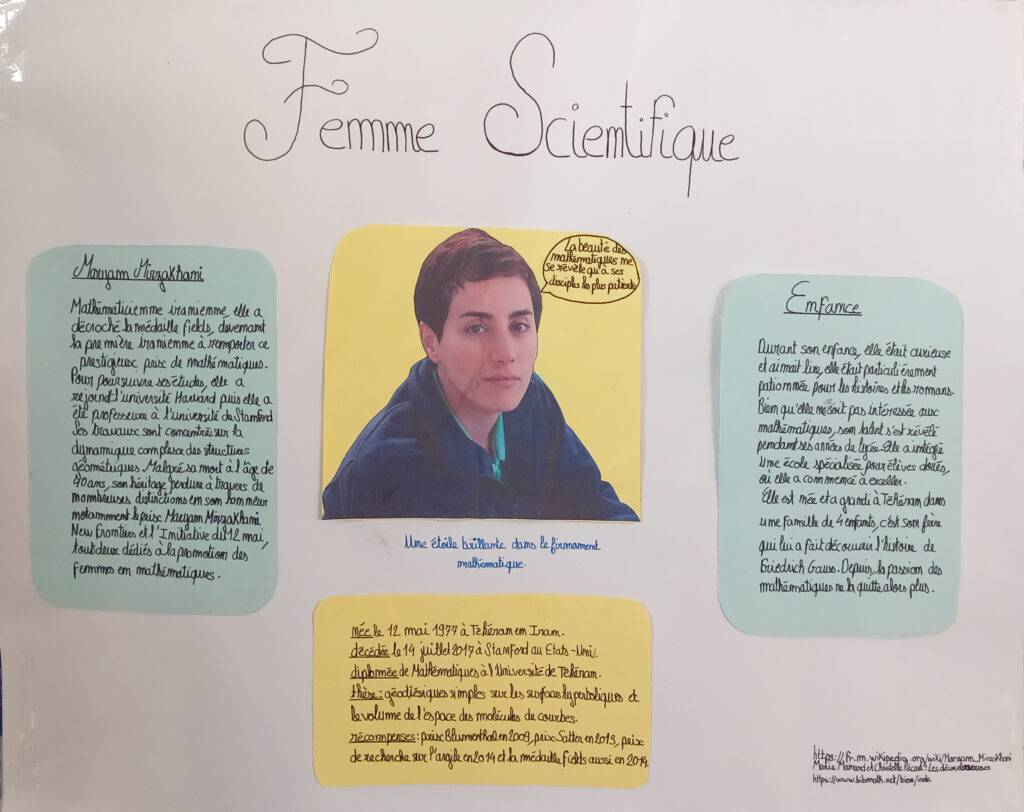 Femme Scientifique
Maryam Mirzakhani
Mathématicienne iranienne, elle a
décroché la médaille fields, devenant
la première iranienne à remporter ce
prestigieux prix de mathématiques.
Pour poursuivre ses études, elle a
rejoint l'université Harvard puis elle a
été professeure à l'université de Stanford
Ses travaux sont concentrés sur la
dynamique complexe des structures
géométriques. Malgré sa mort à l'âge de
40 ans, son héritage perdure à travers de
nombreuses distinctions en son honneur
notamment le prix Maryam Mirzakhani
New Frontiers et l'Initiative du 12 mai,
tout deux dédiés à la promotion des
femmes en mathématiques.
La beauté des
mathématiques ne
se révèle qu'à ses
disciples les plus patients
Une étoile brillante dans le firmament
mathématique.
née le 12 mai 1977 à Téhéran en Iran.
décédée le 14 juillet 2017 à Stanford au Etats-Uni.
diplomée de Mathématiques à l'Université de Téhéran.
thèse: géodésiques simples sur les surfaces hyperboliques et
le volume de l'espace des molécules de courbes.
récompenses: prix Blumenthal en 2009, prix Satter en 2013, prix
de recherche sur l'argile en 2014 et la médaille fields aussi en 2014
Enfance
Durant son enfance, elle était curieuse
et aimait lire, elle était particulièrement
pationnée pour les histoires et les romans.
Bien qu'elle ne soit pas intéressée aux
mathématiques, son talent s'est révélé
pendant ses années de lycée. Elle a intégré
une école spécialisée pour élèves doués,
où elle a commencé à exceller.
Elle est née et a grandi à Téhéran dans
une famille de 4 enfants, c'est son frère
qui lui a fait découvrir l'histoire de
Friedrich Gauss. Depuis, la passion des
mathématiques ne la quitte alors plus.
https://fr.m.wikipedia.org/wiki/Maryam_Mirzakhani
Les découvreuses
https://www.bibmath.net/bios/inde